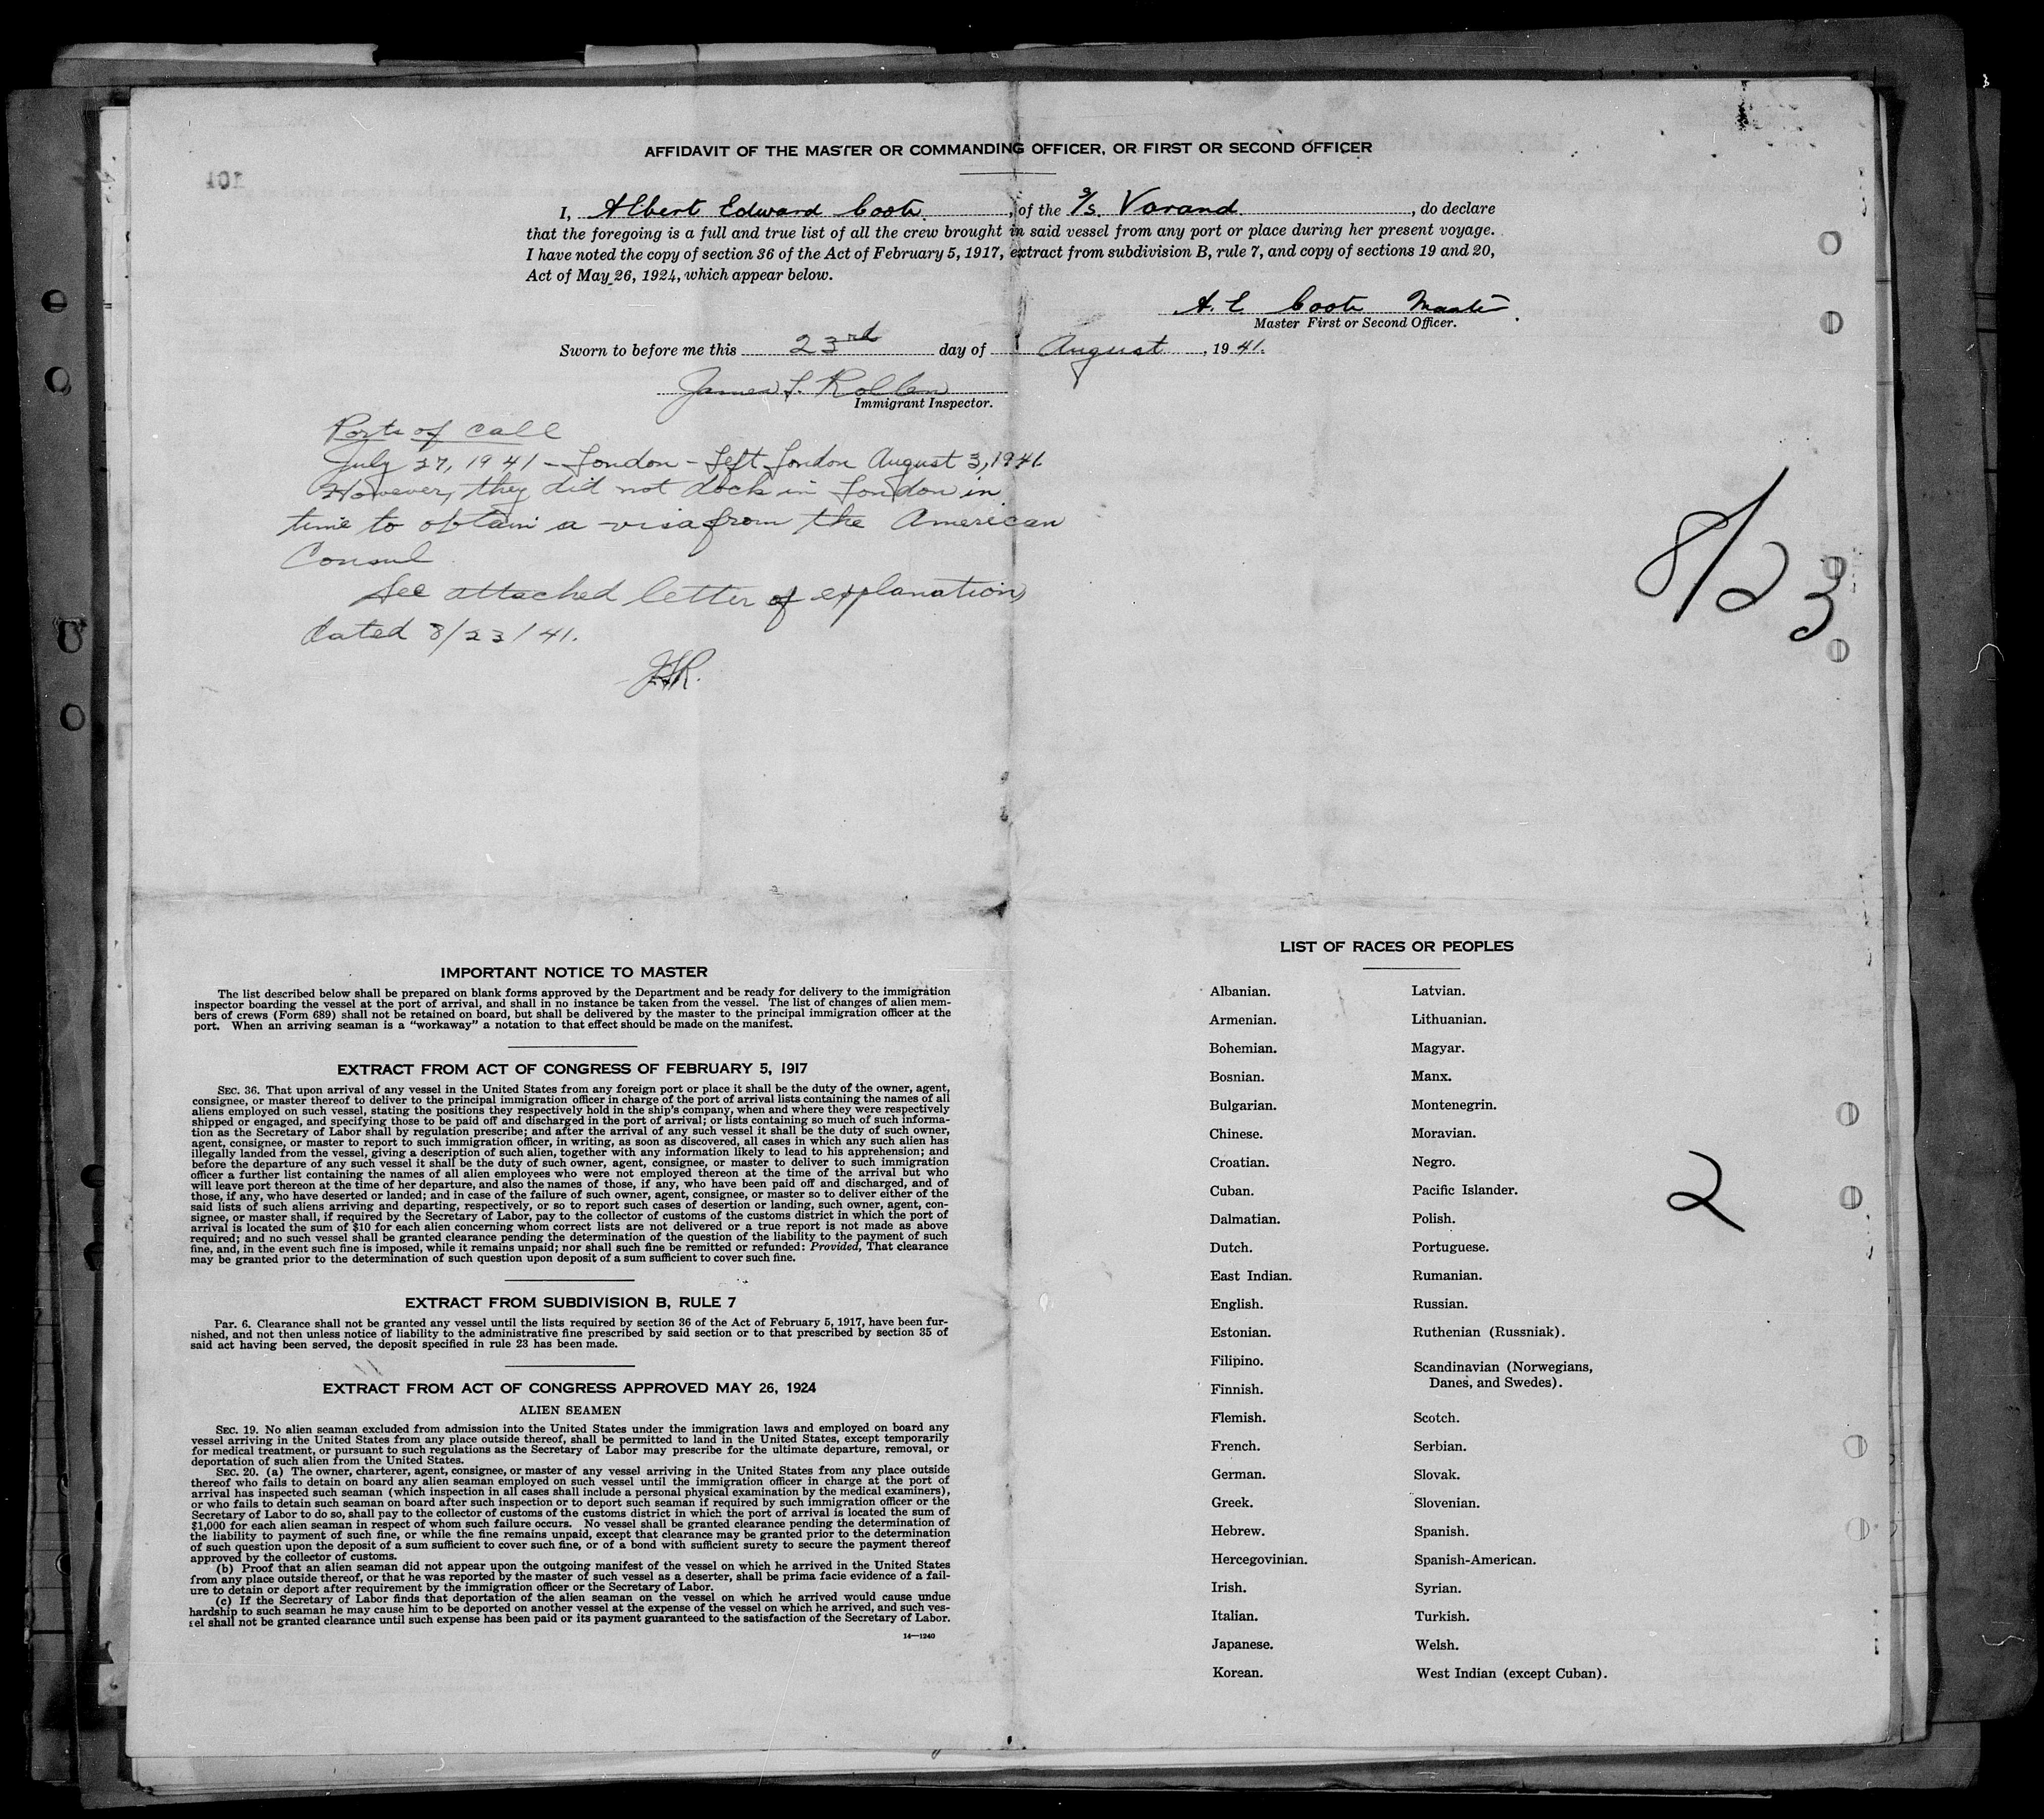 AFFIDAVIT OF THE MASTER OR COMMANDING OFFICER, OR FIRST OR SECOND OFFICER
101
I, Albert Edward Coote, of the S/S. Varand, do declare
that the foregoing is a full and true list of all the crew brought in said vessel from any port or place during her present voyage.
I have noted the copy of section 36 of the Act of February 5, 1917, extract from subdivision B, rule 7, and copy of sections 19 and 20,
Act of May 26, 1924, which appear below.
A. E Coote Master
Master First or Second Officer.
Sworn to before me this 23rd day of August, 1941.
James F.
Immigrant Inspector.
Ports of call
July 27, 1941 - London - Left London August 3, 1941.
However, they did not dock in London in
time to obtain a visa from the American
Consul
See attached letter of explanation
dated 8/23/41.
JFR.
8/23
IMPORTANT NOTICE TO MASTER
The list described below shall be prepared on blank forms approved by the Department and be ready for delivery to the immigration
inspector boarding the vessel at the port of arrival, and shall in no instance be taken from the vessel. The list of changes of alien mem-
bers of crews (Form 689) shall not be retained on board, but shall be delivered by the master to the principal immigration officer at the
port. When an arriving seaman is a "workaway" a notation to that effect should be made on the manifest.
EXTRACT FROM ACT OF CONGRESS OF FEBRUARY 5, 1917
SEC. 36. That upon arrival of any vessel in the United States from any foreign port or place it shall be the duty of the owner, agent,
consignee, or master thereof to deliver to the principal immigration officer in charge of the port of arrival lists containing the names of all
aliens employed on such vessel, stating the positions they respectively hold in the ship's company, when and where they were respectively
shipped or engaged, and specifying those to be paid off and discharged in the port of arrival; or lists containing so much of such informa-
tion as the Secretary of Labor shall by regulation prescribe; and after the arrival of any such vessel it shall be the duty of such owner,
agent, consignee, or master to report to such immigration officer, in writing, as soon as discovered, all cases in which any such alien has
illegally landed from the vessel, giving a description of such alien, together with any information likely to lead to his apprehension; and
before the departure of any such vessel it shall be the duty of such owner, agent, consignee, or master to deliver to such immigration
officer a further list containing the names of all alien employees who were not employed thereon at the time of the arrival but who
will leave port thereon at the time of her departure, and also the names of those, if any, who have been paid off and discharged, and of
those, if any, who have deserted or landed; and in case of the failure of such owner, agent, consignee, or master so to deliver either of the
said lists of such aliens arriving and departing, respectively, or so to report such cases of desertion or landing, such owner, agent, con-
signee, or master shall, if required by the Secretary of Labor, pay to the collector of customs of the customs district in which the port of
arrival is located the sum of $10 for each alien concerning whom correct lists are not delivered or a true report is not made as above
required; and no such vessel shall be granted clearance pending the determination of the question of the liability to the payment of such
fine, and, in the event such fine is imposed, while it remains unpaid; nor shall such fine be remitted or refunded: Provided, That clearance
may be granted prior to the determination of such question upon deposit of a sum sufficient to cover such fine.
EXTRACT FROM SUBDIVISION B, RULE 7
Par. 6. Clearance shall not be granted any vessel until the lists required by section 36 of the Act of February 5, 1917, have been fur-
nished, and not then unless notice of liability to the administrative fine prescribed by said section or to that prescribed by section 35 of
said act having been served, the deposit specified in rule 23 has been made.
EXTRACT FROM ACT OF CONGRESS APPROVED MAY 26, 1924
ALIEN SEAMEN
SEC. 19. No alien seaman excluded from admission into the United States under the immigration laws and employed on board any
vessel arriving in the United States from any place outside thereof, shall be permitted to land in the United States, except temporarily
for medical treatment, or pursuant to such regulations as the Secretary of Labor may prescribe for the ultimate departure, removal, or
deportation of such alien from the United States.
SEC. 20. (a) The owner, charterer, agent, consignee, or master of any vessel arriving in the United States from any place outside
thereof who fails to detain on board any alien seaman employed on such vessel until the immigration officer in charge at the port of
arrival has inspected such seaman (which inspection in all cases shall include a personal physical examination by the medical examiners),
or who fails to detain such seaman on board after such inspection or to deport such seaman if required by such immigration officer or the
Secretary of Labor to do so, shall pay to the collector of customs of the customs district in which the port of arrival is located the sum of
$1,000 for each alien seaman in respect of whom such failure occurs. No vessel shall be granted clearance pending the determination of
the liability to payment of such fine, or while the fine remains unpaid, except that clearance may be granted prior to the determination
of such question upon the deposit of a sum sufficient to cover such fine, or of a bond with sufficient surety to secure the payment thereof
approved by the collector of customs.
(b) Proof that an alien seaman did not appear upon the outgoing manifest of the vessel on which he arrived in the United States
from any place outside thereof, or that he was reported by the master of such vessel as a deserter, shall be prima facie evidence of a fail-
ure to detain or deport after requirement by the immigration officer or the Secretary of Labor.
(c) If the Secretary of Labor finds that deportation of the alien seaman on the vessel on which he arrived would cause undue
hardship to such seaman he may cause him to be deported on another vessel at the expense of the vessel on which he arrived, and such ves-
sel shall not be granted clearance until such expense has been paid or its payment guaranteed to the satisfaction of the Secretary of Labor.
14—1240
LIST OF RACES OR PEOPLES
Albanian. Latvian.
Armenian. Lithuanian.
Bohemian. Magyar.
Bosnian. Manx.
Bulgarian. Montenegrin.
Chinese. Moravian.
Croatian. Negro.
Cuban. Pacific Islander.
Dalmatian. Polish.
Dutch. Portuguese.
East Indian. Rumanian.
English. Russian.
Estonian. Ruthenian (Russniak).
Filipino. Scandinavian (Norwegians,
Danes, and Swedes).
Finnish.
Flemish. Scotch.
French. Serbian.
German. Slovak.
Greek. Slovenian.
Hebrew. Spanish.
Hercegovinian. Spanish-American.
Irish. Syrian.
Italian. Turkish.
Japanese. Welsh.
Korean. West Indian (except Cuban).
2